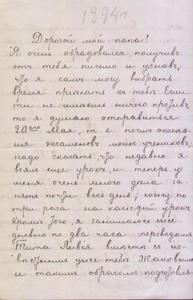 1894 г
Дорогой мой папа!
Я очень обрадовался получив
отъ тебя письмо и узнавъ,
что я самъ могу выбрать
время приѣхать къ тебѣ. Если
ты не имѣешь ничего противъ,
то я думаю отправиться
20го Мая, т. е. послѣ окончанія
экзаменовъ моихъ учениковъ,
надо сказать что недавно я
взялъ еще урокъ и теперь у
меня очень много дѣла за
нять почти весь день; кому по
три раза на каждый урокъ
Кромѣ того, я занимаюсь еже
дневно по два часа переводомъ
Тита Ливія вмѣстѣ съ
и такимъ образомъ